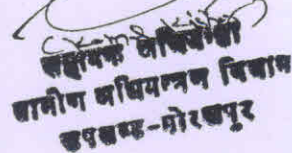 सहायक अभियन्ता
ग्रामीण अभियन्त्रण विभाग
उपखण्ड-गोरखपुर